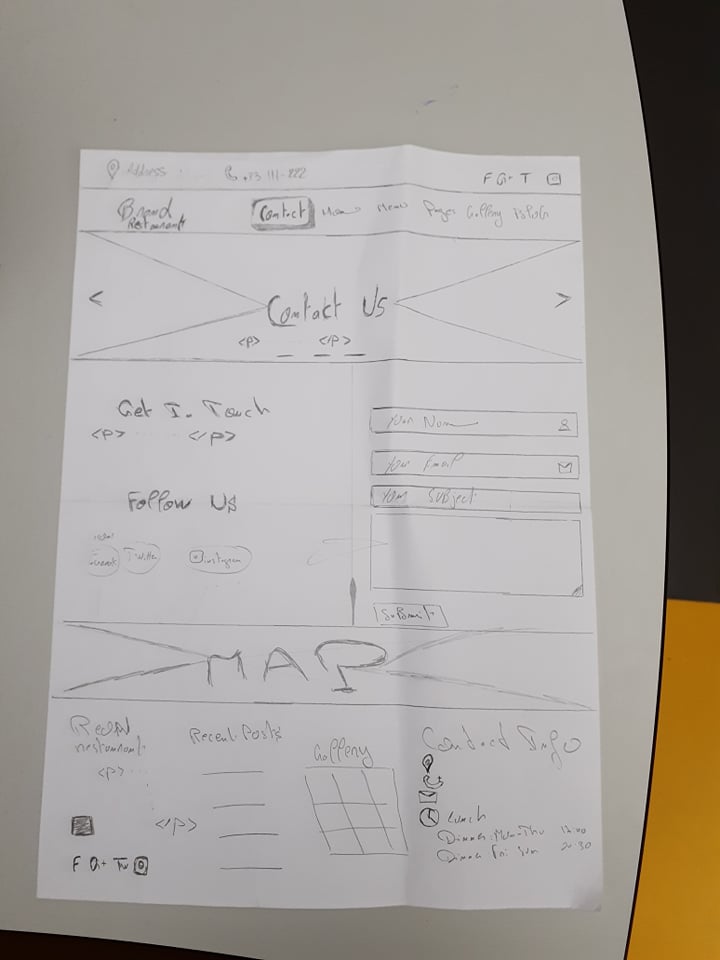 Address
+23 111-222
F G+ T
Brand
Restaurant
Contact Home Menu Pages Gallery BLOG
<
>
Contact Us
<P> </P>
Get In Touch
<P> </P>
Follow Us
Twitter
instagram
Your Name
Your Email
Your SUBject
SuBmit
MAP
Restaurant
<P>
</P>
F G+ Tw
Recent Posts
Gallery
Contact Info
Lunch
Dinner: Mon-Thu
Dinner Fri Sun 20:30